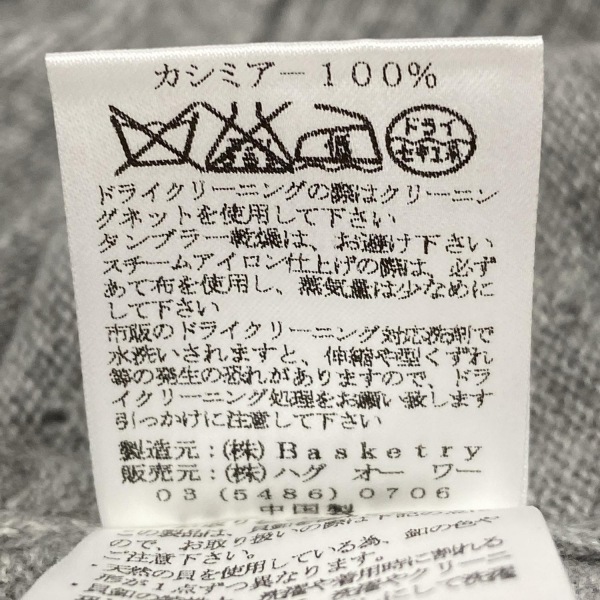 カシミアー100%
ドライ
セキユ系
低
ドライクリーニングの際はクリーニン
グネットを使用して下さい
タンブラー乾燥は、お避け下さい
スチームアイロン仕上げの際は、必ず
あて布を使用し、蒸気量は少なめに
して下さい
市販のドライクリーニング対応洗剤で
水洗いされますと、伸縮や型くずれ
等の発生の恐れがありますので、ドラ
イクリーニング処理をお願い致します
引っかけに注意して下さい
製造元:(株)Basketry
販売元:(株)ハグ オー ワー
03(5486)0706
中国製
の製品は、貝釦
ので、お取り扱いの際は下記の
ご注意下さい。
・天然の貝を使用している為、釦の色や
形が1点ずつ異なります。
や着用時に割れる